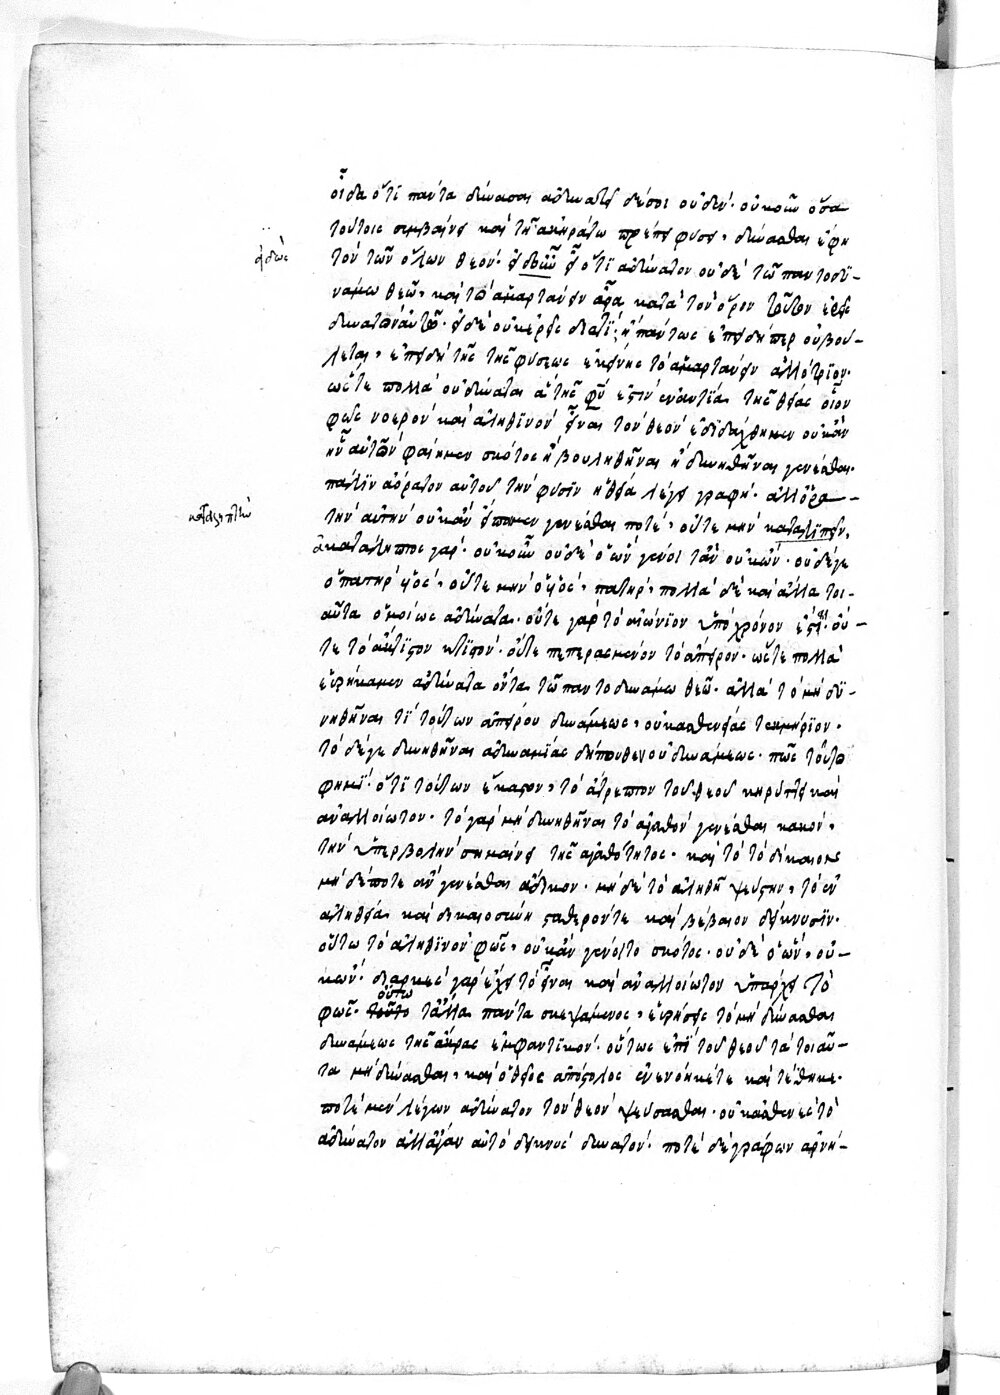 οἶδα ὅτι πάντα δύνασαι ἀδυνατεῖ δέ σοι οὐδέν. οὐκοῦν ὅσα
τούτοις συμβαίνει καὶ τῇ ἀκηράτω πρέπει φύσει, δύνασθαι ἔφη
τὸν τῶν ὅλων θεόν. ὅτι ἀδύνατον οὐδὲ τῶ παντοδυ-
νάμω θεῶ, καὶ τὸ ἁμαρτάνειν ἄρα κατὰ τὸν ὅρον τοῦτον
δυνατὸν αὐτῶ. διατί; ἢ πάντως ἐπειδήπερ οὐ βού-
λεται, ἐπειδὴ τῆς τῆς φύσεως ἐκείνης τὸ ἁμαρτάνειν ἀλλότριον.
ὥστε πολλὰ οὐ δύναται ἃ τῆς ἐστιν ἐναντία τῆς θείας οἷον
φῶς νοερὸν καὶ ἀληθινὸν εἶναι τὸν θεὸν ἐδιδάχθημεν οὐκ ἂν
ἦν αὐτὸν φαίημεν σκότος ἢ βουληθῆναι ἢ δυνηθῆναι γενέσθαι.
πάλιν ἀόρατον αὐτοῦ τὴν φύσιν ἡ θεία λέγει γραφή. ἀλλ' ὁρα-
τὴν αὐτὴν οὐκ ἂν εἴποιμεν γενέσθαι ποτέ, οὔτε μὴν καταλιπεῖν,
ἀκατάληπτος γάρ. οὐκοῦν οὐδὲ ὁ ὢν γένοιτ' ἂν οὐκ ὤν. οὐδέ γε
ὁ πατὴρ υἱός, οὔτε μὴν ὁ υἱός, πατήρ. πολλὰ δὲ καὶ ἄλλα τοι-
αῦτα ὁμοίως ἀδύνατα. οὔτε γὰρ τὸ αἰώνιον ὑπὸ χρόνον ἐστίν. οὔ-
τε τὸ ἄκτιστον κτιστόν. οὔτε πεπερασμένον τὸ ἄπειρον. ὥστε πολλὰ
εὑρήκαμεν ἀδύνατα ὄντα τῶ παντοδυνάμω θεῶ. ἀλλὰ τὸ μὴ δυ-
νηθῆναι τι τούτων ἀπείρου δυνάμεως, οὐκ ἀσθενείας τεκμήριον.
τὸ δέ γε δυνηθῆναι ἀδυναμίας δήπουθεν οὐ δυνάμεως. πῶς τοῦτο
φημι; ὅτι τούτων ἕκαστον, τὸ ἄτρεπτον τοῦ θεοῦ κηρύττει καὶ
ἀναλλοίωτον. τὸ γὰρ μὴ δυνηθῆναι τὸ ἀγαθὸν γενέσθαι κακόν,
τὴν ὑπερβολὴν σημαίνει τῆς ἀγαθότητος. καὶ τὸ τὸ δίκαιον
μὴ δέποτε ἂν γενέσθαι ἄδικον. μὴ δὲ τὸ ἀληθῆ ψεύστην, τὸ ἐν
ἀληθεία καὶ δικαιοσύνη σταθερόν τε καὶ βέβαιον δείκνυσιν.
οὕτω τὸ ἀληθινὸν φῶς, οὐκ ἂν γένοιτο σκότος. οὐδὲ ὁ ὤν, οὐ-
κ ὤν. διαρκὲς γὰρ ἔχει τὸ εἶναι καὶ ἀναλλοίωτον ὑπάρχει τὸ
οὕτω
φῶς. τοῦτο τἄλλα πάντα σκεψάμενος, εὑρήσεις τὸ μὴ δύνασθαι
δυνάμεως τῆς ἄκρας ἐμφαντικόν. οὕτως ἐπὶ τοῦ θεοῦ τὰ τοιαῦ-
τα μὴ δύνασθαι, καὶ ὁ θεῖος ἀπόστολος ἐνενόηκέ τε καὶ τέθηκε.
ποτὲ μὲν λέγων ἀδύνατον τὸν θεὸν ψεύσασθαι. οὐκ ἀσθενὲς τὸ
ἀδύνατον ἀλλ' ἄγαν αὐτὸ δείκνυσι δυνατόν. ποτὲ δὲ γράφων ἀρνή-